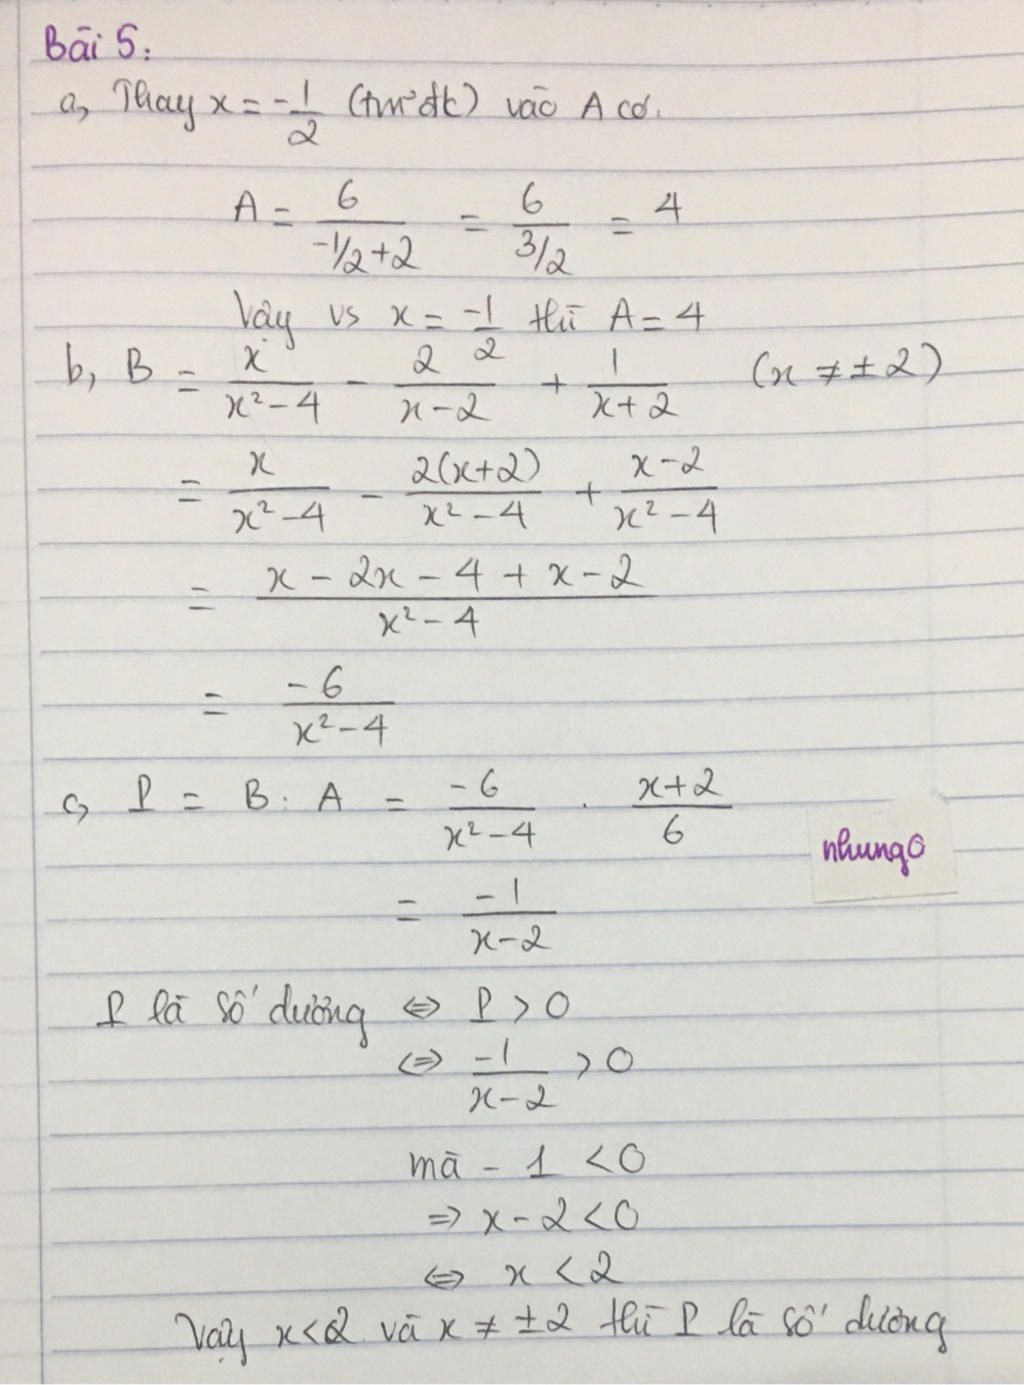 Bài 5:
a, Thay x = -1/2 (tm đk) vào A có:
A = 6/(-1/2+2) = 6/(3/2) = 4
Vậy vs x = -1/2 thì A = 4
b, B = x/(x²-4) - 2/(x-2) + 1/(x+2) (x ≠ ±2)
= x/(x²-4) - 2(x+2)/(x²-4) + (x-2)/(x²-4)
= (x - 2x - 4 + x - 2)/(x²-4)
= -6/(x²-4)
c, P = B : A = -6/(x²-4) . (x+2)/6
nhung0
= -1/(x-2)
P là số dương ⇔ P > 0
⇔ -1/(x-2) > 0
mà -1 < 0
⇒ x - 2 < 0
⇔ x < 2
Vậy x < 2 và x ≠ ±2 thì P là số dương